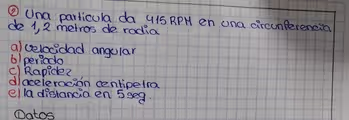 ① Una particula da 415 RPM en una circunferencia
de 1,2 metros de radio
a) velocidad angular
b) periodo
c) Rapidez
d) aceleración centipetra
e) la distancia en 5 seg.
Datos